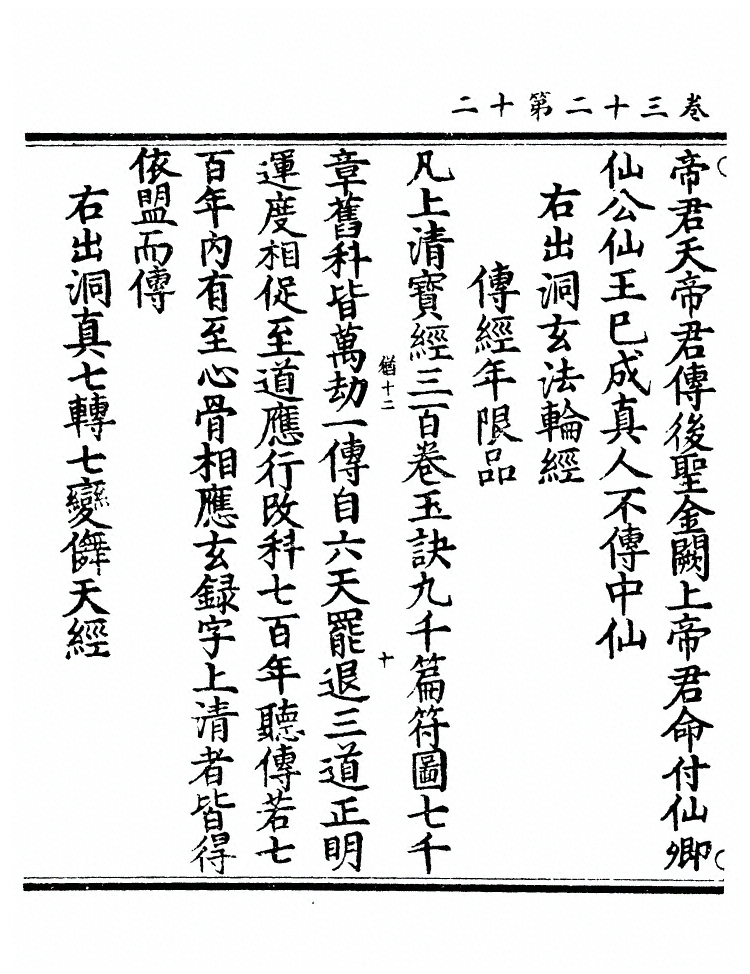 卷三十二第十二
帝君天帝君傳後聖金闕上帝君命付仙卿
仙公仙王巳成真人不傳中仙
右出洞玄法輪經
傳經年限品
凡上清寶經三百卷玉訣九千篇符圖七千
猶十二
十
章舊科皆萬劫一傳自六天罷退三道正明
運度相促至道應行改科七百年聽傳若七
百年內有至心骨相應玄録字上清者皆得
依盟而傳
右出洞真七轉七變儛天經